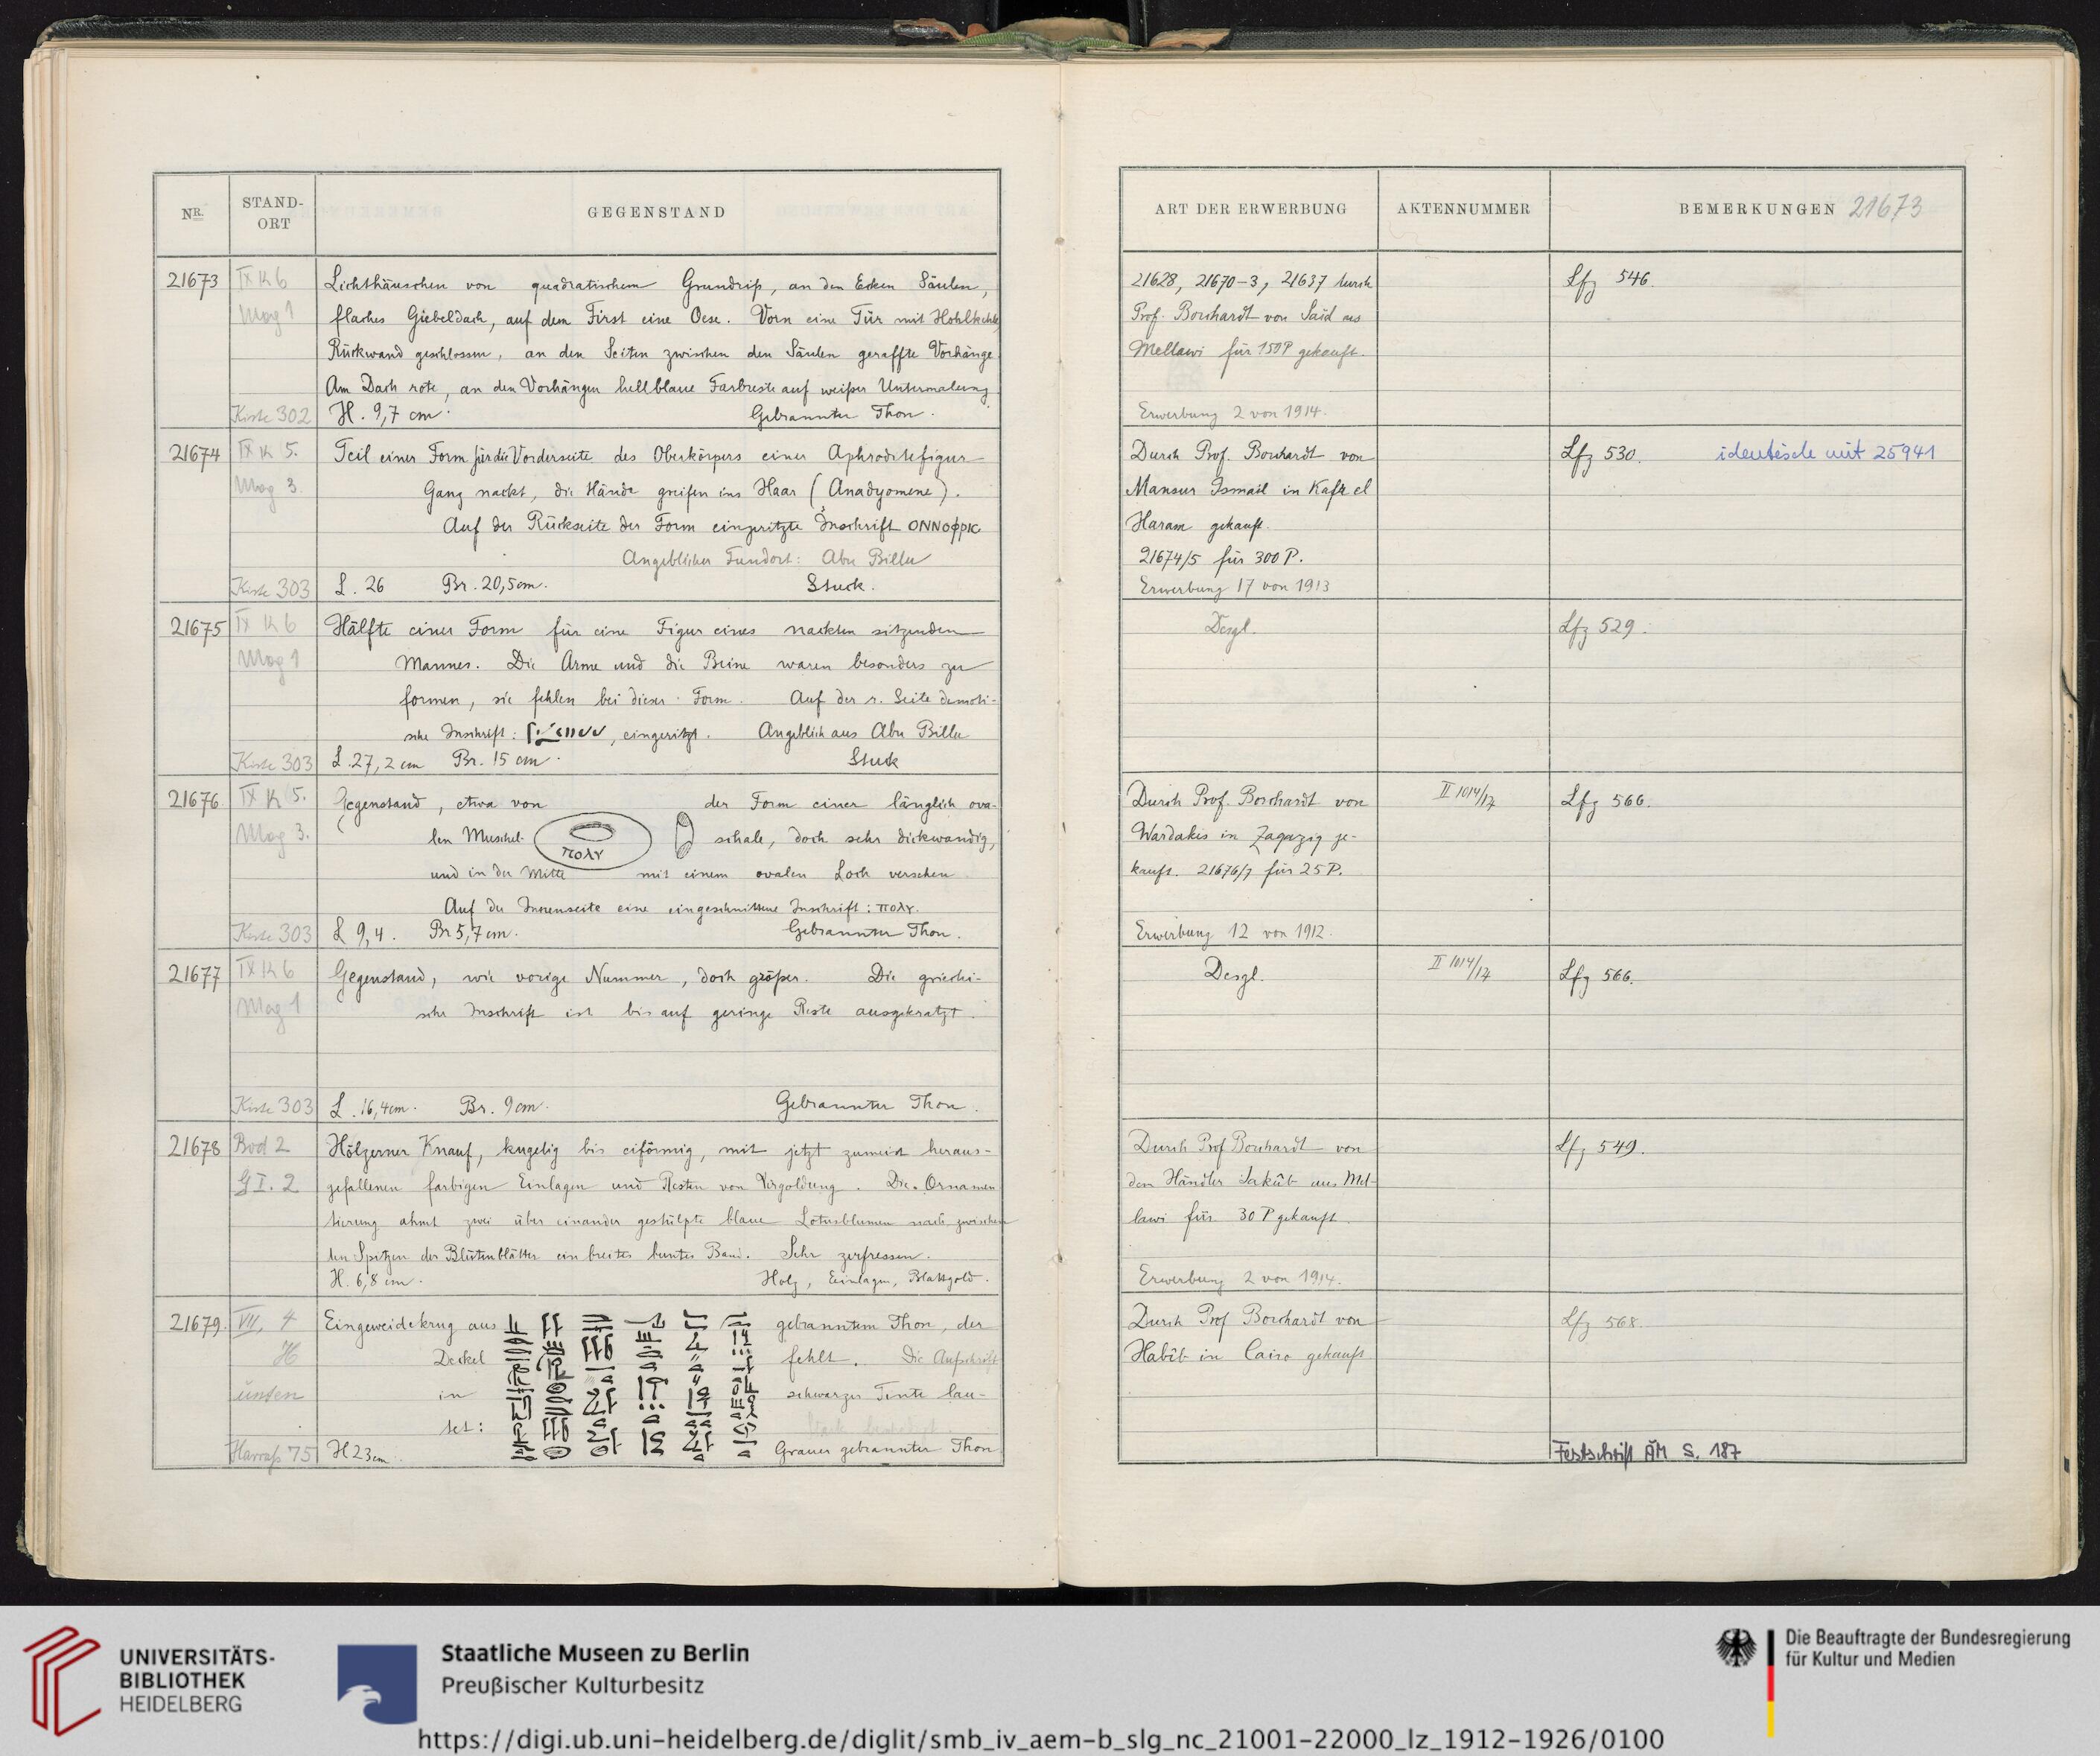 NR.
STAND-
ORT
GEGENSTAND
21673
IX K 6
Mag 1
Kiste 302
Lichthäuschen von quadratischem Grundriß, an den Ecken Säulen,
flaches Giebeldach, auf dem First eine Oese. Vorn eine Tür mit Hohlkehle
Rückwand geschlossen, an den Seiten zwischen den Säulen geraffte Vorhänge
Am Dach rote, an den Vorhängen hellblaue Farbreste auf weißer Untermalung
H. 9,7 cm. Gebrannter Thon.
21674
IX K 5.
Mag 3.
Kiste 303
Teil einer Form für die Vorderseite des Oberkörpers einer Aphroditefigur
Ganz nackt, die Hände greifen ins Haar (Anadyomene).
Auf der Rückseite der Form eingeritzte Inschrift ΟΝΝΟΦΡΙC
Angeblicher Fundort: Abu Billu
L. 26 Br. 20,5cm. Stuck.
21675
IX K 6
Mag 1
Kiste 303
Hälfte einer Form für eine Figur eines nackten sitzenden
Mannes. Die Arme und die Beine waren besonders zu
formen, sie fehlen bei dieser Form. Auf der r. Seite demoti-
sche Inschrift: , eingeritzt. Angeblich aus Abu Billu
L. 27,2 cm Br. 15 cm. Stuck
21676
IX K 5.
Mag 3.
Kiste 303
Gegenstand, etwa von der Form einer länglich ova-
len Muschel- schale, doch sehr dickwandig,
πολγ
und in der Mitte mit einem ovalen Loch versehen.
Auf der Innenseite eine eingeschnittene Inschrift: πολγ.
L 9,4. Br 5,7cm. Gebrannter Thon.
21677
IX K 6
Mag 1
Kiste 303
Gegenstand, wie vorige Nummer, doch größer. Die griechi-
sche Inschrift ist bis auf geringe Reste ausgekratzt.
L. 16,4cm. Br. 9cm. Gebrannter Thon.
21678
Bod 2
G I. 2
Hölzerner Knauf, kugelig bis eiförmig, mit jetzt zumeist heraus-
gefallenen farbigen Einlagen und Resten von Vergoldung. Die Ornamen
tierung ahmt zwei über einander gestülpte blaue Lotusblumen nach, zwischen
den Spitzen der Blütenblätter ein breites buntes Band. Sehr zerfressen.
H. 6,8 cm. Holz, Einlagen, Blattgold.
21679.
VII, 4
H
unten
Harrass 75
Eingeweidekrug aus gebranntem Thon, der
Deckel fehlt. Die Aufschrift
in schwarzer Tinte lau-
tet:
H 23cm. Grauer gebrannter Thon
ART DER ERWERBUNG
AKTENNUMMER
BEMERKUNGEN 21673
21628, 21670-3, 21637 durch
Prof. Borchardt von Said aus
Mellawi für 150P gekauft.
Erwerbung 2 von 1914.
Lfz 546.
Durch Prof. Borchardt von
Mansur Ismail in Kafr el
Haram gekauft.
21674/5 für 300 P.
Erwerbung 17 von 1913
Lfz 530. identisch mit 25941
Desgl.
Lfz 529.
Durch Prof. Borchardt von
Wardakis in Zagazig ge-
kauft. 21676/7 für 25 P.
Erwerbung 12 von 1912.
II 1014/17
Lfz 566.
Desgl.
II 1014/17
Lfz 566.
Durch Prof Borchardt von
dem Händler Jakûb aus Mel-
lawi für 30 P gekauft.
Erwerbung 2 von 1914.
Lfz 549.
Durch Prof Borchardt von
Habîb in Cairo gekauft
Lfz 568.
Festschrift ÄM S. 187
UNIVERSITÄTS-
BIBLIOTHEK
HEIDELBERG
Staatliche Museen zu Berlin
Preußischer Kulturbesitz
Die Beauftragte der Bundesregierung
für Kultur und Medien
https://digi.ub.uni-heidelberg.de/diglit/smb_iv_aem-b_slg_nc_21001-22000_lz_1912-1926/0100